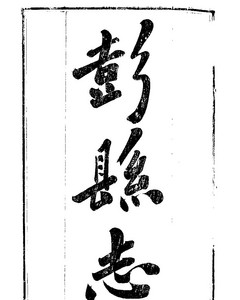 彭縣志